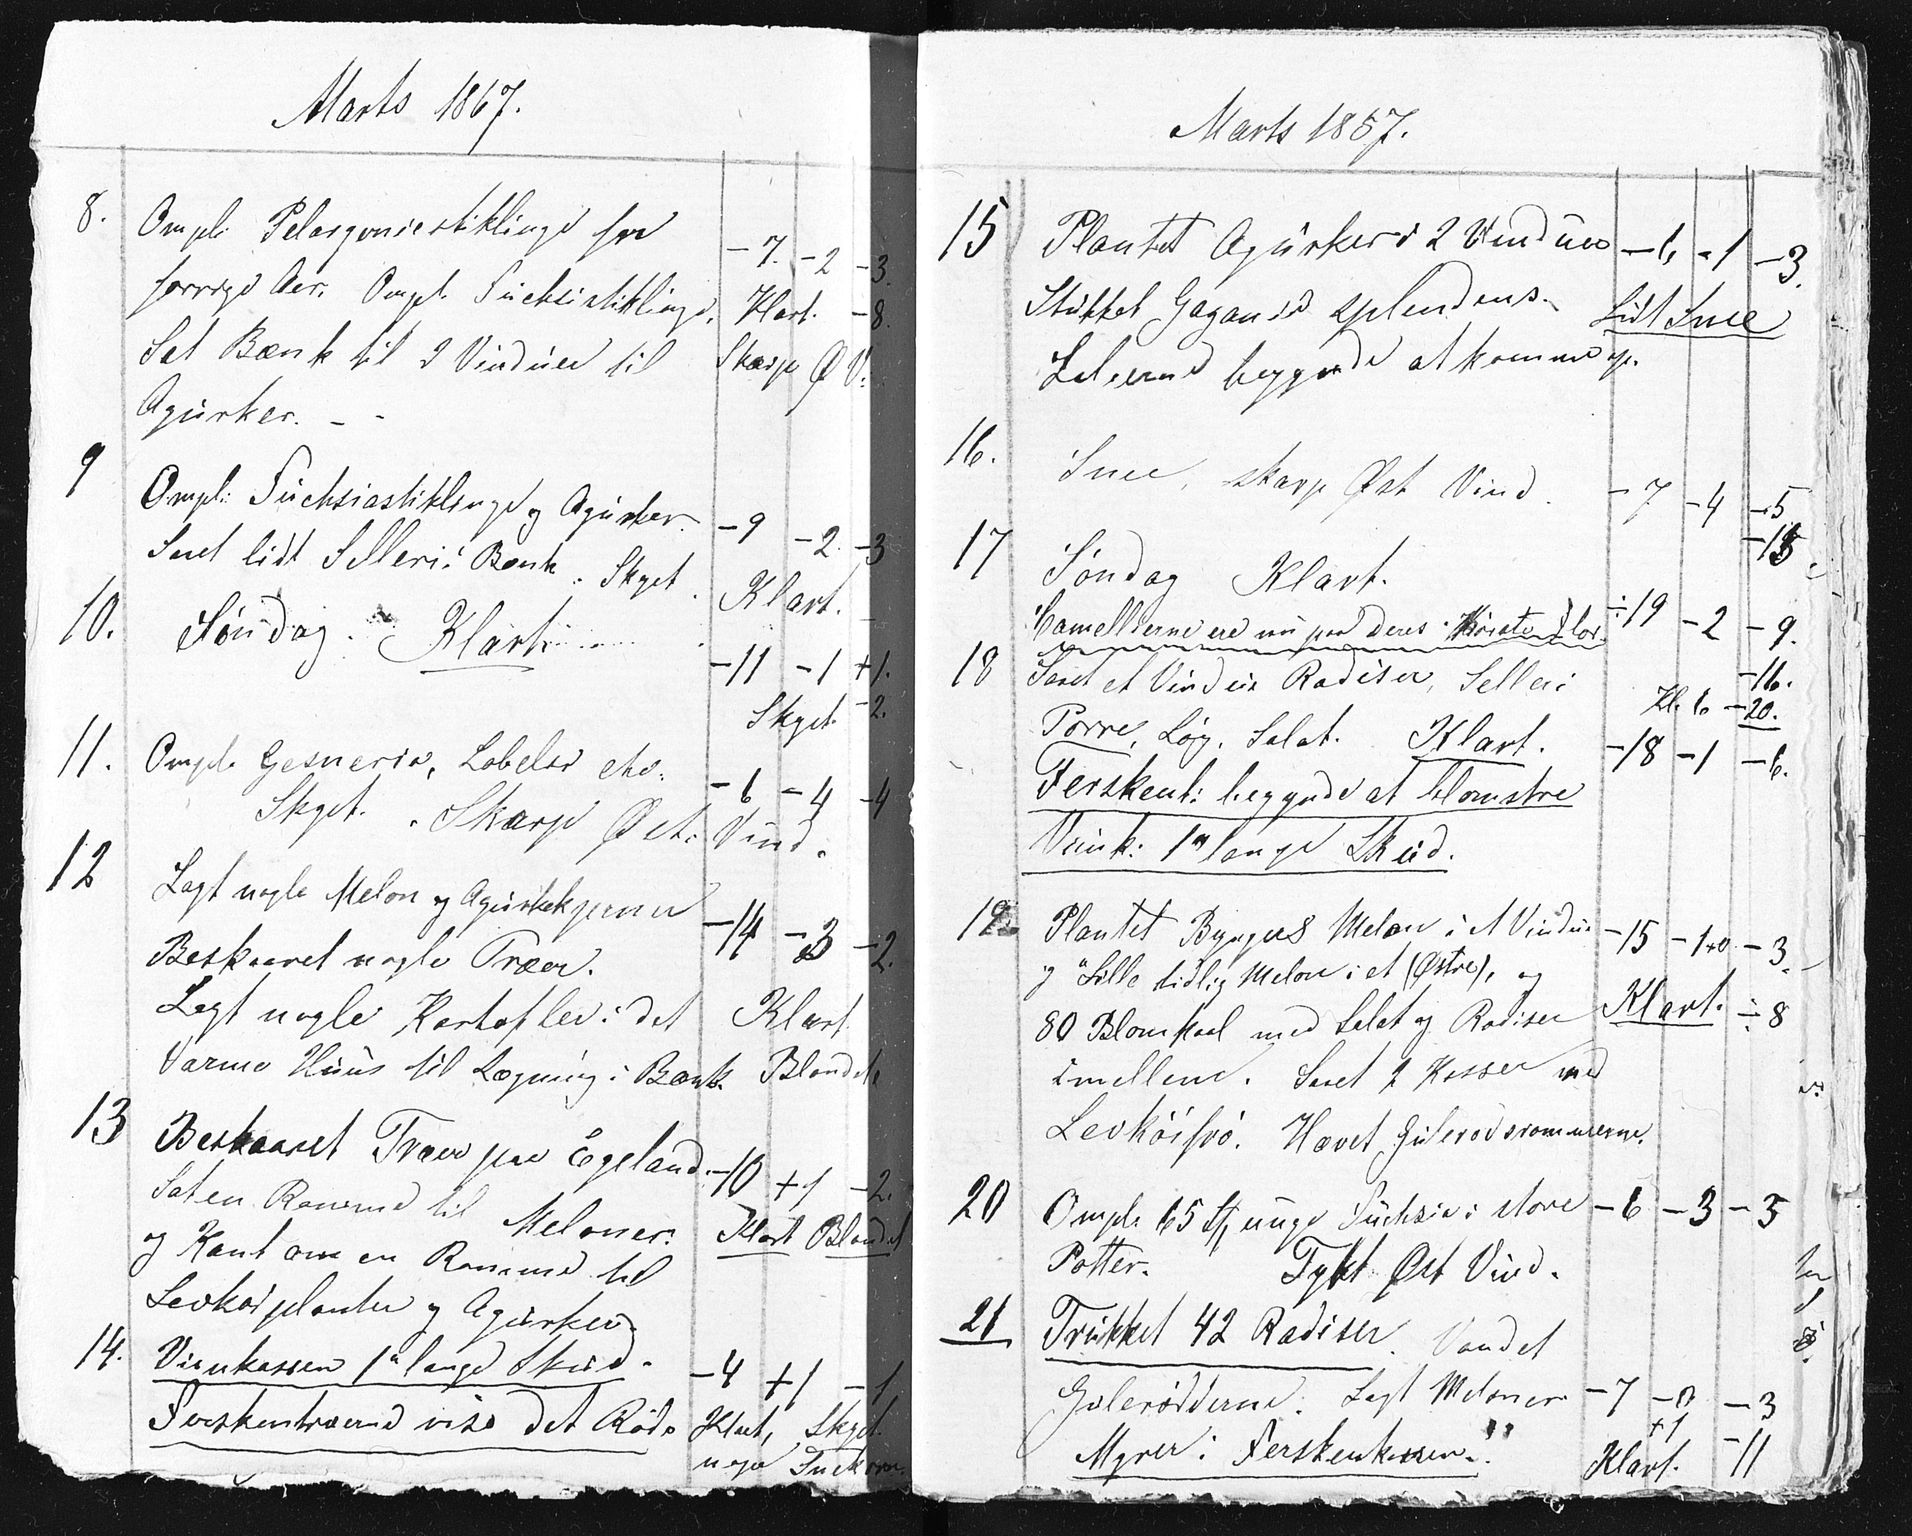 Marts 1867.
8. Ompl. Pelargoniestiklinge fra
forrige Aar. Ompl. Fuchsiastiklinge. -7. -2 -3.
Klart. -8.
Sat Bænk til 2 Vinduer til Skarp Ø V:
Agurker. - -
9 Ompl: Fuchsiastiklinge og Agurker. -9 -2. -3
Saaet lidt Selleri i Bænk. Skyet. Klart.
10. Søndag. Klart. -11 -1 +1.
Skyet. -2.
11. Ompl. Gesneria, Lobeler etc. -6 -4 -4
Skyet. Skarp Øst: Vind.
12 Lagt nogle Melon og Agurkekjerner -14 -3 -2.
Beskaaret nogle Træer.
Lagt nogle Kartofler i det Klart
Varme Huus til Lægning i Bænk. Blandet
13 Beskaaret Træer paa Egeland. -10 +1 -2.
Sat en Ramme til Meloner. Klart Blandet
og Kant om en Ramme til
Levkøiplanter og Agurker.
14. Viinkassen 1" lange Skud. -4 +1 -1
Ferskentræerne vise det Røde Klart, Skyet.
noget Snek
Marts 1857.
15 Plantet Agurker i 2 Vinduer -6, -1 -3.
Stukket Gegania splendens. Lidt Snee
begynde at komme op.
16. Snee, skarp Øst Vind. -7 -4 -5
-15
17 Søndag Klart.
Camellierne ere nu paa deres Høieste Flor. ÷19 -2 -9.
-16.
18 Saaet et Vindue Radiser, Selleri
Kl. 6 -20.
Porre, Løg, Salat. Klart. -18 -1 -6.
Ferskent: begynde at blomstre
Viink: 1" lange Skud.
19. Plantet Melon i et Vindue -15 -1+0 -3.
og "Lille tidlig Melon i et (Østre), og
80 Blomkaal med Salat og Radiser Klart. ÷8
imellem. Saaet 2 Kasser med
Levkøifrø. Hævet Gulerodsrammerne.
20 Ompl. 65 St, unge Fuchsia i store -6 -3 -3
Potter. Tykt Øst Vind.
21 Trukket 42 Radiser. Vandet
Gulerødderne. Lagt Meloner. -7 -0 -3
+1
Myrer i Ferskenkassen. Klart. -11